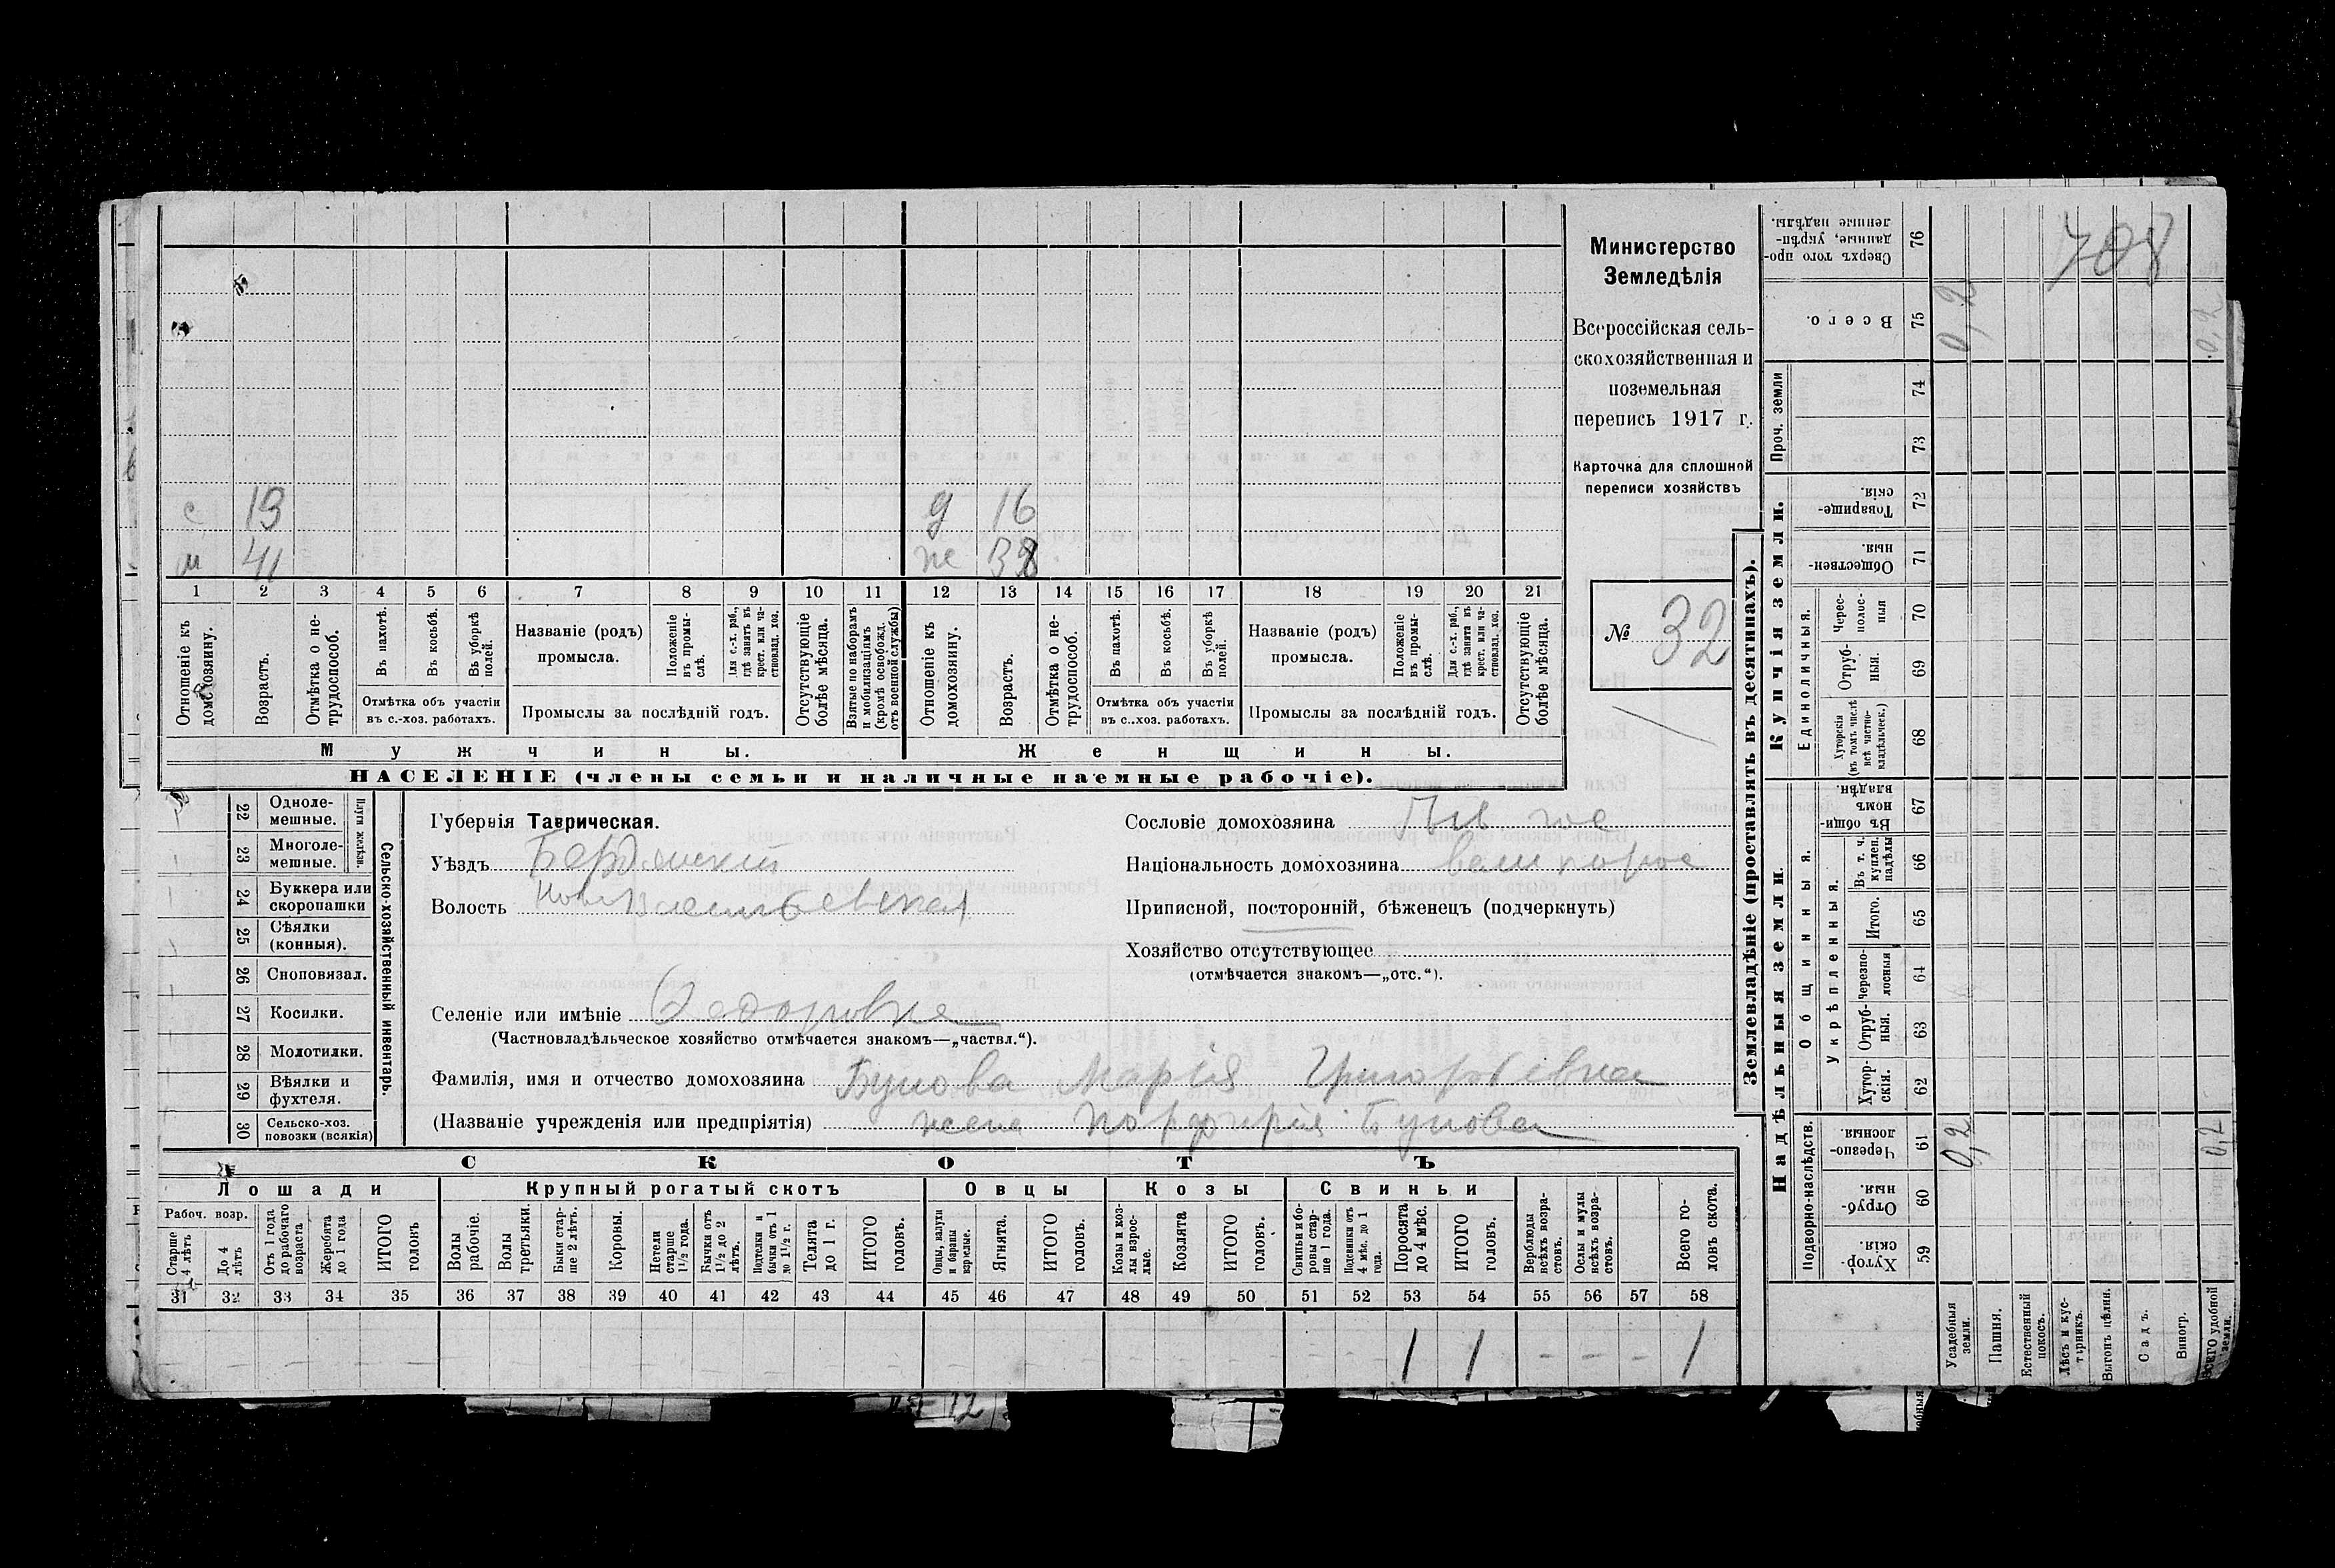 с 19 д 16
м 41 ж 38
1 2 3 4 5 6 7 8 9 10 11 12 13 14 15 16 17 18 19 20 21
Отношеніе къ домохозяину.
Возрастъ.
Отмѣтка о не-трудоспособ.
Въ пахотѣ.
Въ косьбѣ.
Въ уборкѣ полей.
Отмѣтка объ участіи въ с.-хоз. работахъ.
Названіе (родъ) промысла.
Положеніе въ промы-слѣ.
Для с.-х. раб., гдѣ занятъ въ крест. или ча-стновлад. хоз.
Промыслы за послѣдній годъ.
Отсутствующіе болѣе мѣсяца.
Взятые по наборамъ и мобилизаціямъ (кромѣ освобожд. отъ военной службы)
Отношеніе къ домохозяину.
Возрастъ.
Отмѣтка о не-трудоспособ.
Въ пахотѣ.
Въ косьбѣ.
Въ уборкѣ полей.
Отмѣтка объ участіи въ с..хоз. работахъ.
Названіе (родъ) промысла.
Положеніе въ промы-слѣ.
Для с.-х. раб., гдѣ занята въ крест. или ча-стновлад. хоз.
Промыслы за послѣдній годъ.
Отсутствующіе болѣе мѣсяца.
Мужчины. Женщины.
НАСЕЛЕНІЕ (члены семьи и наличные наемные рабочіе).
Министерство
Земледѣлія
Всероссійская сель-
скохозяйственная и
поземельная
перепись 1917 г.
Карточка для сплошной
переписи хозяйствъ
№ 32
22 Одноле-мешные.
23 Многоле-мешные.
Плуги желѣзн.
24 Буккера или скоропашки
25 Сѣялки (конныя).
26 Сноповязал.
27 Косилки.
28 Молотилки.
29 Вѣялки и фухтеля.
30 Сельско-хоз. повозки (всякія)
Сельско-хозяйственный инвентарь.
Губернія Таврическая.
Уѣздъ Бердянскій
Волость Ново Васильевская
Селеніе или имѣніе Федоровка
(Частновладѣльческое хозяйство отмѣчается знакомъ—„частвл.“).
Фамилія, имя и отчество домохозяина Бунова Марія Григорьівна
(Названіе учрежденія или предпріятія) жена Порфирія Бунова
Сословіе домохозяина
Національность домохозяина
Приписной, посторонній, бѣженецъ (подчеркнуть)
Хозяйство отсутствующее
(отмѣчается знакомъ—„отс.“).
СКОТЪ
Лошади Крупный рогатый скотъ Овцы Козы Свиньи
Рабоч. возр.
Старше 4 лѣтъ
До 4 лѣтъ
Отъ 1 года до рабочаго возраста
Жеребята до 1 года
ИТОГО головъ
Волы рабочіе.
Волы третьяки.
Быки стар-ше 2 лѣтъ.
Коровы.
Нетели старше 1½ года.
Бычки отъ 1½ до 2 лѣтъ.
Подтелки и бычки отъ 1 до 1½ г.
Телята до 1 г.
ИТОГО головъ.
Овцы, валухи и бараны взрослые.
Ягнята.
ИТОГО головъ.
Козы и коз-лы взрос-лые.
Козлята
ИТОГО головъ.
Свиньи и бо-ровы стар-ше 1 года.
Подсвинки отъ 4 мѣс. до 1 года.
Поросята до 4 мѣс.
ИТОГО головъ.
Верблюды всѣхъ возра-стовъ.
Ослы и мулы всѣхъ возра-стовъ.
Всего го-ловъ скота.
31 32 33 34 35 36 37 38 39 40 41 42 43 44 45 46 47 48 49 50 51 52 53 54 55 56 57 58
1 1 - - - 1
Землевладѣніе (проставлять въ десятинахъ).
Надѣльныя земли.
Купчія земли.
Проч. земли
Подворно-наслѣдств.
Общинныя.
Укрѣпленныя.
Единоличныя.
Сверхъ того про-данные, укрѣп-ленные надѣлы. 76
Всего. 75 0,2
74
73
Товарище-скія. 72
Обществен-ныя. 71
Черес-полос-ныя 70
Отруб-ныя. 69
Хуторскія (въ томъ числѣ всѣ частно-владѣльческ.) 68
Въ общин-номъ владѣн. 67
Въ т. ч. куплен. надѣлы 66
Итого. 65
Черезпо-лосныя 64
Отруб-ныя. 63
Хутор-скія. 62
Черезпо-лосныя 61 0,2
Отруб-ныя. 60
Хутор-скія 59
708
0,2
0,2
Усадебныя земли.
Пашня.
Естественный покосъ.
Лѣсъ и кус-тарникъ.
Выгонъ цѣлин.
Садъ.
Виногр.
ВСЕГО удобной земли.